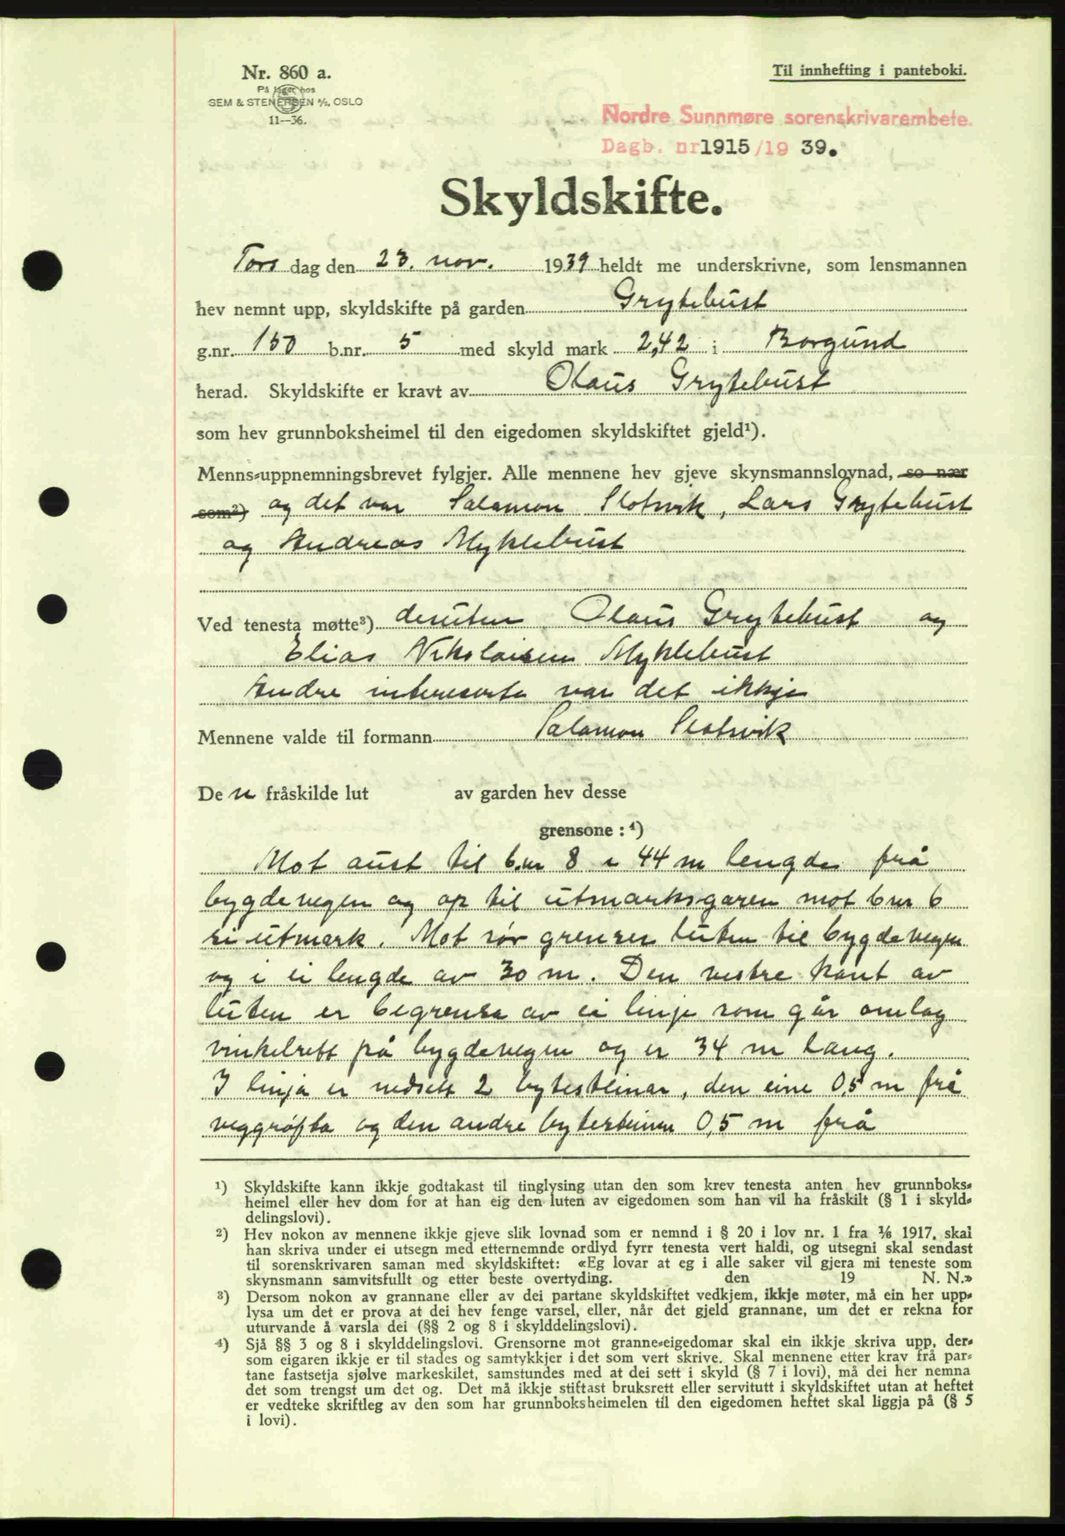 Nr. 860 a.
På lager hos
SEM & STENERSEN A/S, OSLO
11--36.
Til innhefting i panteboki.
Nordre Sunnmøre sorenskrivarembete.
Dagb. nr 1915/19 39.
Skyldskifte.
Tors dag den 23. nov. 1939 heldt me underskrivne, som lensmannen
hev nemnt upp, skyldskifte på garden Grytebust
g.nr. 150 b.nr. 5 med skyld mark 2,42 i Borgund
herad. Skyldskifte er kravt av Olaus Grytebust
som hev grunnboksheimel til den eigedomen skyldskiftet gjeld¹).
Menns-uppnemningsbrevet fylgjer. Alle mennene hev gjeve skynsmannslovnad, so nær
som²) og det var Salamon Slotsvik, Lars Grytebust
og Andreas Myklebust
Ved tenesta møtte³) desuten Olaus Grytebust og
Elias Nikolaisen Myklebust
Andre interesserte var det ikkje
Mennene valde til formann Salamon Slotsvik
De n fråskilde lut av garden hev desse
grensone : ⁴)
Mot aust til b.nr 8 i 44 m lengde frå
bygdevegen og op til utmarksgaren mot b nr 6
si utmark. Mot sør grenser luten til bygdevegen
og i ei lengde av 30 m. Den vestre kant av
luten er begrensa av ei linje som går omlag
vinkelrett på bygdevegen og er 34 m lang.
I linja er nedsett 2 bytesteinar, den eine 0,5 m frå
veggrøfta og den andre bytesteinen 0,5 m frå
¹) Skyldskifte kann ikkje godtakast til tinglysing utan den som krev tenesta anten hev grunnboks-
heimel eller hev dom for at han eig den luten av eigedomen som han vil ha fråskilt (§ 1 i skyld-
delingslovi).
²) Hev nokon av mennene ikkje gjeve slik lovnad som er nemnd i § 20 i lov nr. 1 fra 1/6 1917, skal
han skriva under ei utsegn med etternemnde ordlyd fyrr tenesta vert haldi, og utsegni skal sendast
til sorenskrivaren saman med skyldskiftet: «Eg lovar at eg i alle saker vil gjera mi teneste som
skynsmann samvitsfullt og etter beste overtyding. den 19 N. N.»
³) Dersom nokon av grannane eller av dei partane skyldskiftet vedkjem, ikkje møter, må ein her upp-
lysa um det er prova at dei hev fenge varsel, eller, når det gjeld grannane, um det er rekna for
uturvande å varsla dei (§§ 2 og 8 i skylddelingslovi).
⁴) Sjå §§ 3 og 8 i skylddelingslovi. Grensorne mot granne-eigedomar skal ein ikkje skriva upp, der-
som eigaren ikkje er til stades og samtykkjer i det som vert skrive. Skal mennene etter krav frå par-
tane fastsetja sjølve markeskilet, samstundes med at dei sett i skyld (§ 7 i lovi), må dei her nemna
det som trengst um det og. Det må ikkje stiftast bruksrett eller servitutt i skyldskiftet utan at heftet
er vedteke skriftleg av den som har grunnboksheimelen til den eigedomen heftet skal liggja på (§ 5
i lovi).